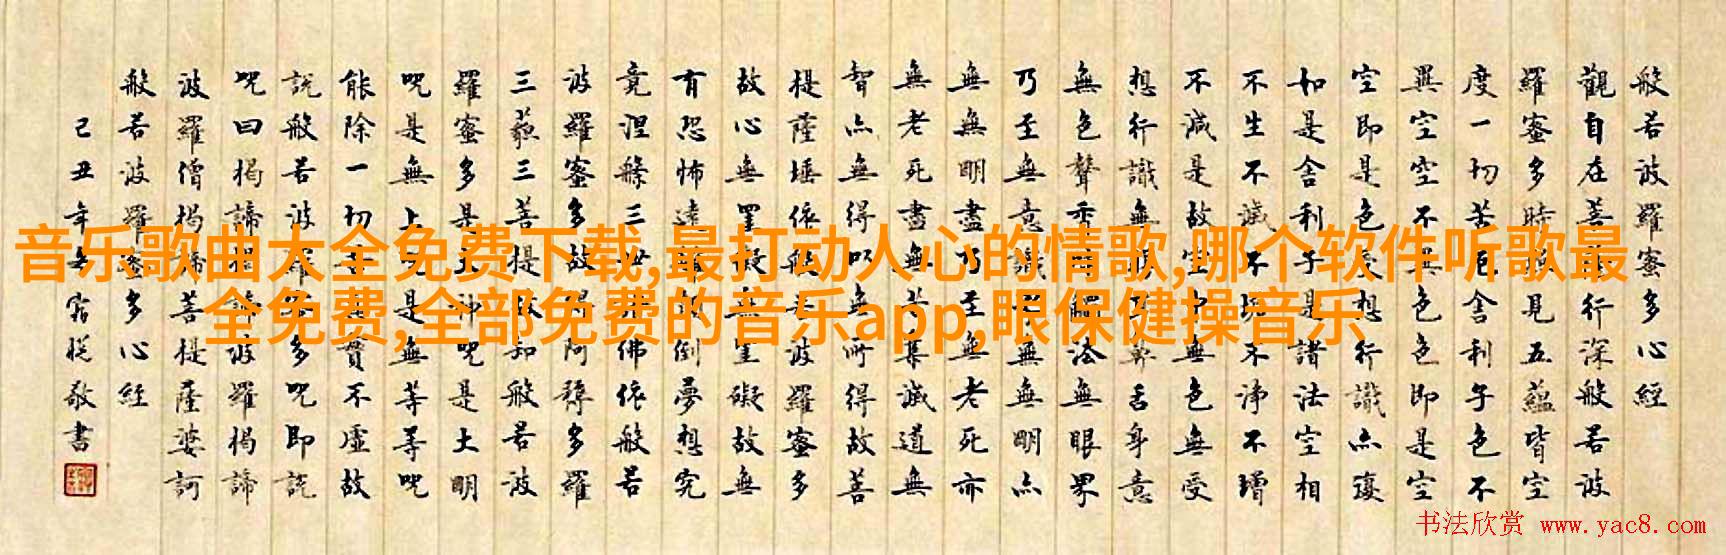 音乐歌曲大全免费下载,最打动人心的情歌,哪个软件听歌最
全免费,全部免费的音乐app,眼保健操音乐
般若波羅蜜多心經
觀自在菩薩行深般若波
羅蜜多時照見五蘊皆空
度一切苦厄舍利子色不
異空空不異色色即是空
空即是色受想行識亦復
如是舍利子是諸法空相
不生不滅不垢不淨不增
不減是故空中無色無受
想行識無眼耳鼻舌身意
無色聲香味觸法無眼界
乃至無意識界無無明亦
無無明盡乃至無老死亦
無老死盡無苦集滅道無
智亦無得以無所得故菩
提薩埵依般若波羅蜜多
故心無罣礙無罣礙故無
有恐怖遠離顛倒夢想究
竟涅槃三世諸佛依般若
波羅蜜多故得阿耨多羅
三藐三菩提故知般若波
羅蜜多是大神呪是大明
呪是無上呪是無等等呪
能除一切苦真實不虛故
說般若波羅蜜多呪即說
呪曰揭諦揭諦波羅揭諦
波羅僧揭諦菩提薩婆訶
般若波羅蜜多心經
己丑年敬書
书法欣赏 www.yac8.com